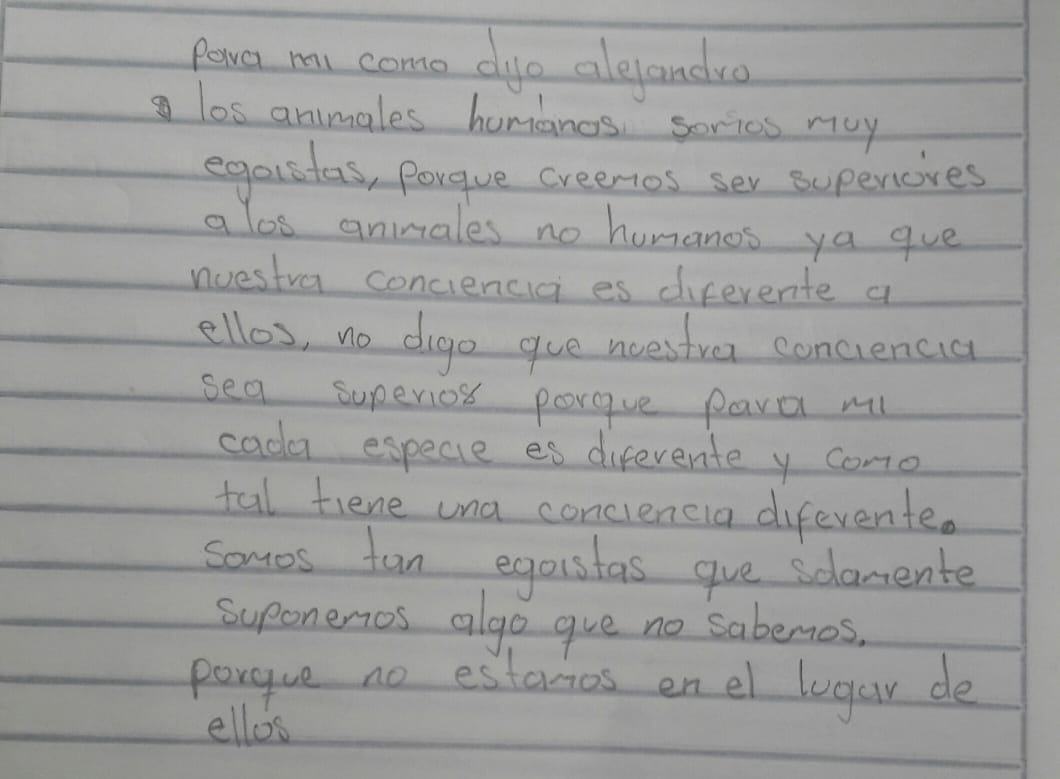 Para mi como dijo alejandro
los animales humanos somos muy
egoistas, porque creemos ser superiores
a los animales no humanos ya que
nuestra conciencia es diferente a
ellos, no digo que nuestra conciencia
sea superior porque para mi
cada especie es diferente y como
tal tiene una conciencia diferente.
Somos tan egoistas que solamente
suponemos algo que no sabemos.
porque no estamos en el lugar de
ellos